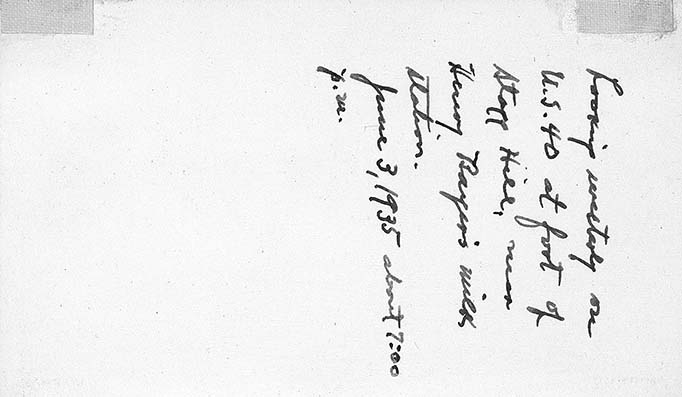 Looking westerly on
U.S. 40 at foot of
Stagg Hill, near
Henry Bayer's milk
station.
June 3, 1935 about 7:00
p.m.